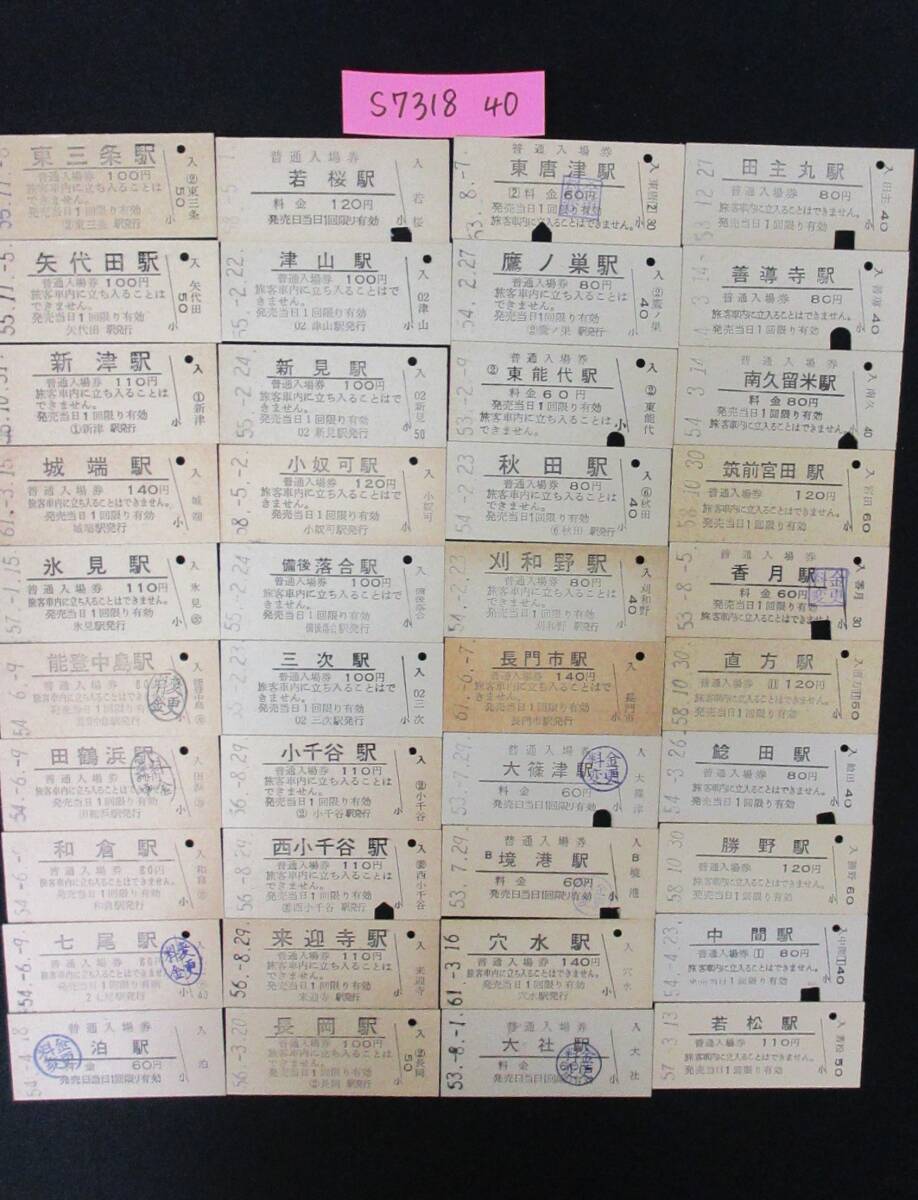 S7318 40
東三条駅
普通入場券 100円
旅客車内に立ち入ることは
できません。
発売当日1回限り有効
②東三条 駅発行
入
②東三条
50
小
矢代田駅
55.11.-5
普通入場券 100円
旅客車内に立ち入ることは
できません。
発売当日1回限り有効
矢代田 駅発行
入
矢代田
50
小
新津駅
普通入場券 110円
旅客車内に立ち入ることは
できません。
発売当日1回限り有効
①新津 駅発行
入
①新津
小
城端駅
61.-3.15
普通入場券 140円
旅客車内に立ち入ることはできません。
発売当日1回限り有効
城端駅発行
小
氷見駅
57.-1.15
普通入場券 110円
旅客車内に立ち入ることはできません。
発売当日1回限り有効
氷見駅発行
入
氷見
小
能登中島駅
54.-6.-9
普通入場券
発売当日1回限り有効
小
田鶴浜駅
54.-6.-9
普通入場券
発売当日1回限り有効
田鶴浜駅発行
小
和倉駅
普通入場券 60円
旅客車内に立ち入ることはできません。
発売当日1回限り有効
和倉駅発行
入
和倉
小
七尾駅
54.-6.-9
普通入場券
小
普通入場券
泊駅
60円
発売日当日1回限り有効
入
泊
小
普通入場券
若桜駅
料金 120円
発売日当日1回限り有効
入
若桜
津山駅
55.-2.22
普通入場券 100円
旅客車内に立ち入ることはで
きません。
発売当日1回限り有効
02 津山駅発行
入
02津山
小
新見駅
55.-2.24
普通入場券 100円
旅客車内に立ち入ることはで
きません。
発売当日1回限り有効
02 新見駅発行
入
02新見
50
小奴可駅
58.-5.-2
普通入場券 120円
旅客車内に立ち入ることはで
きません。
発売当日1回限り有効
小奴可駅発行
入
小奴可
小
備後落合駅
55.-2.24
普通入場券 100円
旅客車内に立ち入ることはで
きません。
発売当日1回限り有効
備後落合駅発行
入
備後落合
小
三次駅
55.-2.23
普通入場券 100円
旅客車内に立ち入ることはで
きません。
発売当日1回限り有効
02 三次駅発行
入
02三次
小
小千谷駅
56.-8.29
普通入場券 110円
旅客車内に立ち入ることは
できません。
発売当日1回限り有効
② 小千谷 駅発行
入
②小千谷
小
西小千谷駅
56.-8.29
普通入場券 110円
旅客車内に立ち入ることは
できません。
発売当日1回限り有効
西小千谷 駅発行
入
西小千谷
来迎寺駅
56.-8.29
普通入場券 110円
旅客車内に立ち入ることは
できません。
発売当日1回限り有効
来迎寺 駅発行
入
来迎寺
小
長岡駅
56.-3.20
普通入場券 100円
旅客車内に立ち入ることは
できません。
発売当日1回限り有効
②長岡 駅発行
入
②長岡
50
普通入場券
東唐津駅
53.-8.-7
2 料金 60円
発売当日1回限り有効
旅客車内に立入ることはできません。
入
30
小
鷹ノ巣駅
54.-2.27
普通入場券 80円
旅客車内に立ち入ることは
できません。
発売当日1回限り有効
②鷹ノ巣 駅発行
入
②鷹ノ巣
40
小
普通入場券
②東能代駅
53.-2.-9
料金 60円
発売当日1回限り有効
旅客車内に立ち入ることはできま
せん。
入
②東能代
秋田駅
54.-2.23
普通入場券 80円
旅客車内に立ち入ることは
できません。
発売当日1回限り有効
⑥秋田 駅発行
入
⑥秋田
40
小
刈和野駅
54.-2.23
普通入場券 80円
旅客車内に立ち入ることは
できません。
発売当日1回限り有効
刈和野 駅発行
入
刈和野
40
小
長門市駅
61.-6.-7
普通入場券 140円
旅客車内に立ち入ることはで
きません。
発売当日1回限り有効
長門市駅発行
入
長門市
小
普通入場券
大篠津駅
53.-7.29
料金 60円
発売日当日1回限り有効
入
大篠津
小
普通入場券
B 境港駅
53.7.29
料金 60円
発売日当日1回限り有効
入
B境港
穴水駅
61.-3.16
普通入場券 140円
旅客車内に立ち入ることはできません。
発売当日1回限り有効
穴水駅発行
入
穴水
小
普通入場券
大社駅
53.-8.-1
料金
発売日当日1回限り有効
入
大社
小
田主丸駅
53.12.27
普通入場券 80円
発売当日1回限り有効
旅客車内に立入ることはできません。
入
田主
40
小
善導寺駅
普通入場券 80円
発売当日1回限り有効
旅客車内に立入ることはできません。
入
善導
40
普通入場券
南久留米駅
54.3.14
料金 80円
発売当日1回限り有効
旅客車内に立入ることはできません。
入
南久
40
筑前宮田駅
58.10.30
普通入場券 120円
発売当日1回限り有効
旅客車内に立入ることはできません。
入
宮田
60
小
普通入場券
香月駅
53.-8.-5
料金 60円
発売当日1回限り有効
旅客車内に立入ることはできません。
料金変更
入
香月
30
直方駅
58.10.30
普通入場券 [1] 120円
発売当日1回限り有効
旅客車内に立入ることはできません。
入
60
小
鯰田駅
54.-3.26
普通入場券 80円
発売当日1回限り有効
旅客車内に立入ることはできません。
入
鯰田
40
小
勝野駅
58.10.30
普通入場券 120円
発売当日1回限り有効
旅客車内に立入ることはできません。
入
勝野
60
小
中間駅
54.-4.23
普通入場券 [1] 80円
旅客車内に立入ることはできません。
入
中間
40
小
若松駅
57.3.13
普通入場券 110円
旅客車内に立入ることはできません。
発売当日1回限り有効
入
若松
50
小